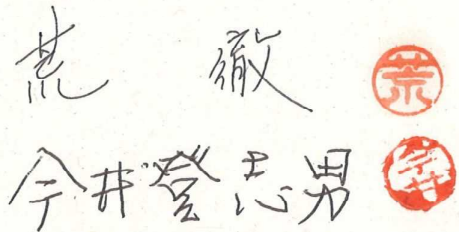 荒 徹 荒
今井登志男 今井